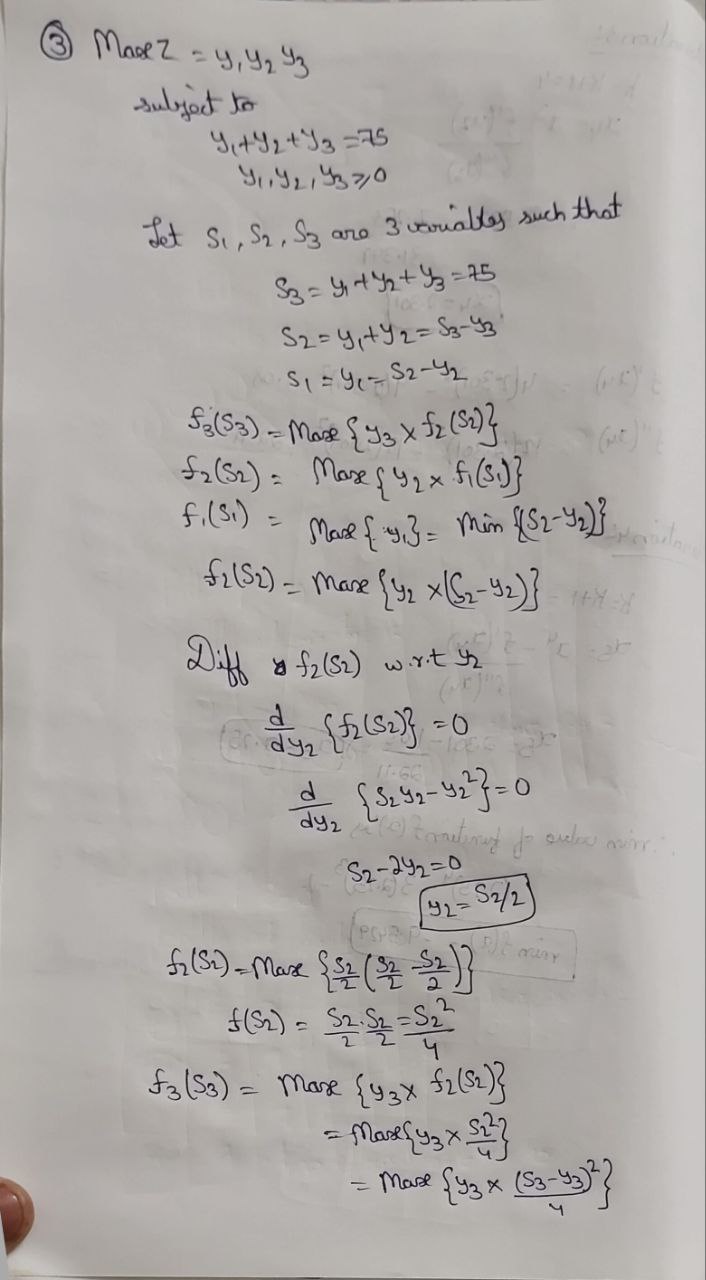 ③ Max Z = y₁ y₂ y₃
subject to
y₁+y₂+y₃=75
y₁, y₂, y₃ ≥ 0
Let S₁, S₂, S₃ are 3 variables such that
S₃ = y₁+y₂+y₃ = 75
S₂ = y₁+y₂ = S₃-y₃
S₁ = y₁ = S₂-y₂
f₃(S₃) = Max {y₃ x f₂(S₂)}
f₂(S₂) = Max {y₂ x f₁(S₁)}
f₁(S₁) = Max {y₁} = Min {(S₂-y₂)}
f₂(S₂) = Max {y₂ x(S₂-y₂)}
Diff f₂(S₂) w.r.t y₂
d/dy₂ {f₂(S₂)} = 0
d/dy₂ {S₂y₂-y₂²} = 0
S₂-2y₂=0
y₂ = S₂/2
f₂(S₂) = Max {S₂/2 (S₂/2 - S₂/2)}
f(S₂) = S₂/2 . S₂/2 = S₂²/4
f₃(S₃) = Max {y₃ x f₂(S₂)}
= Max {y₃ x S₂²/4}
= Max {y₃ x (S₃-y₃)²/4}